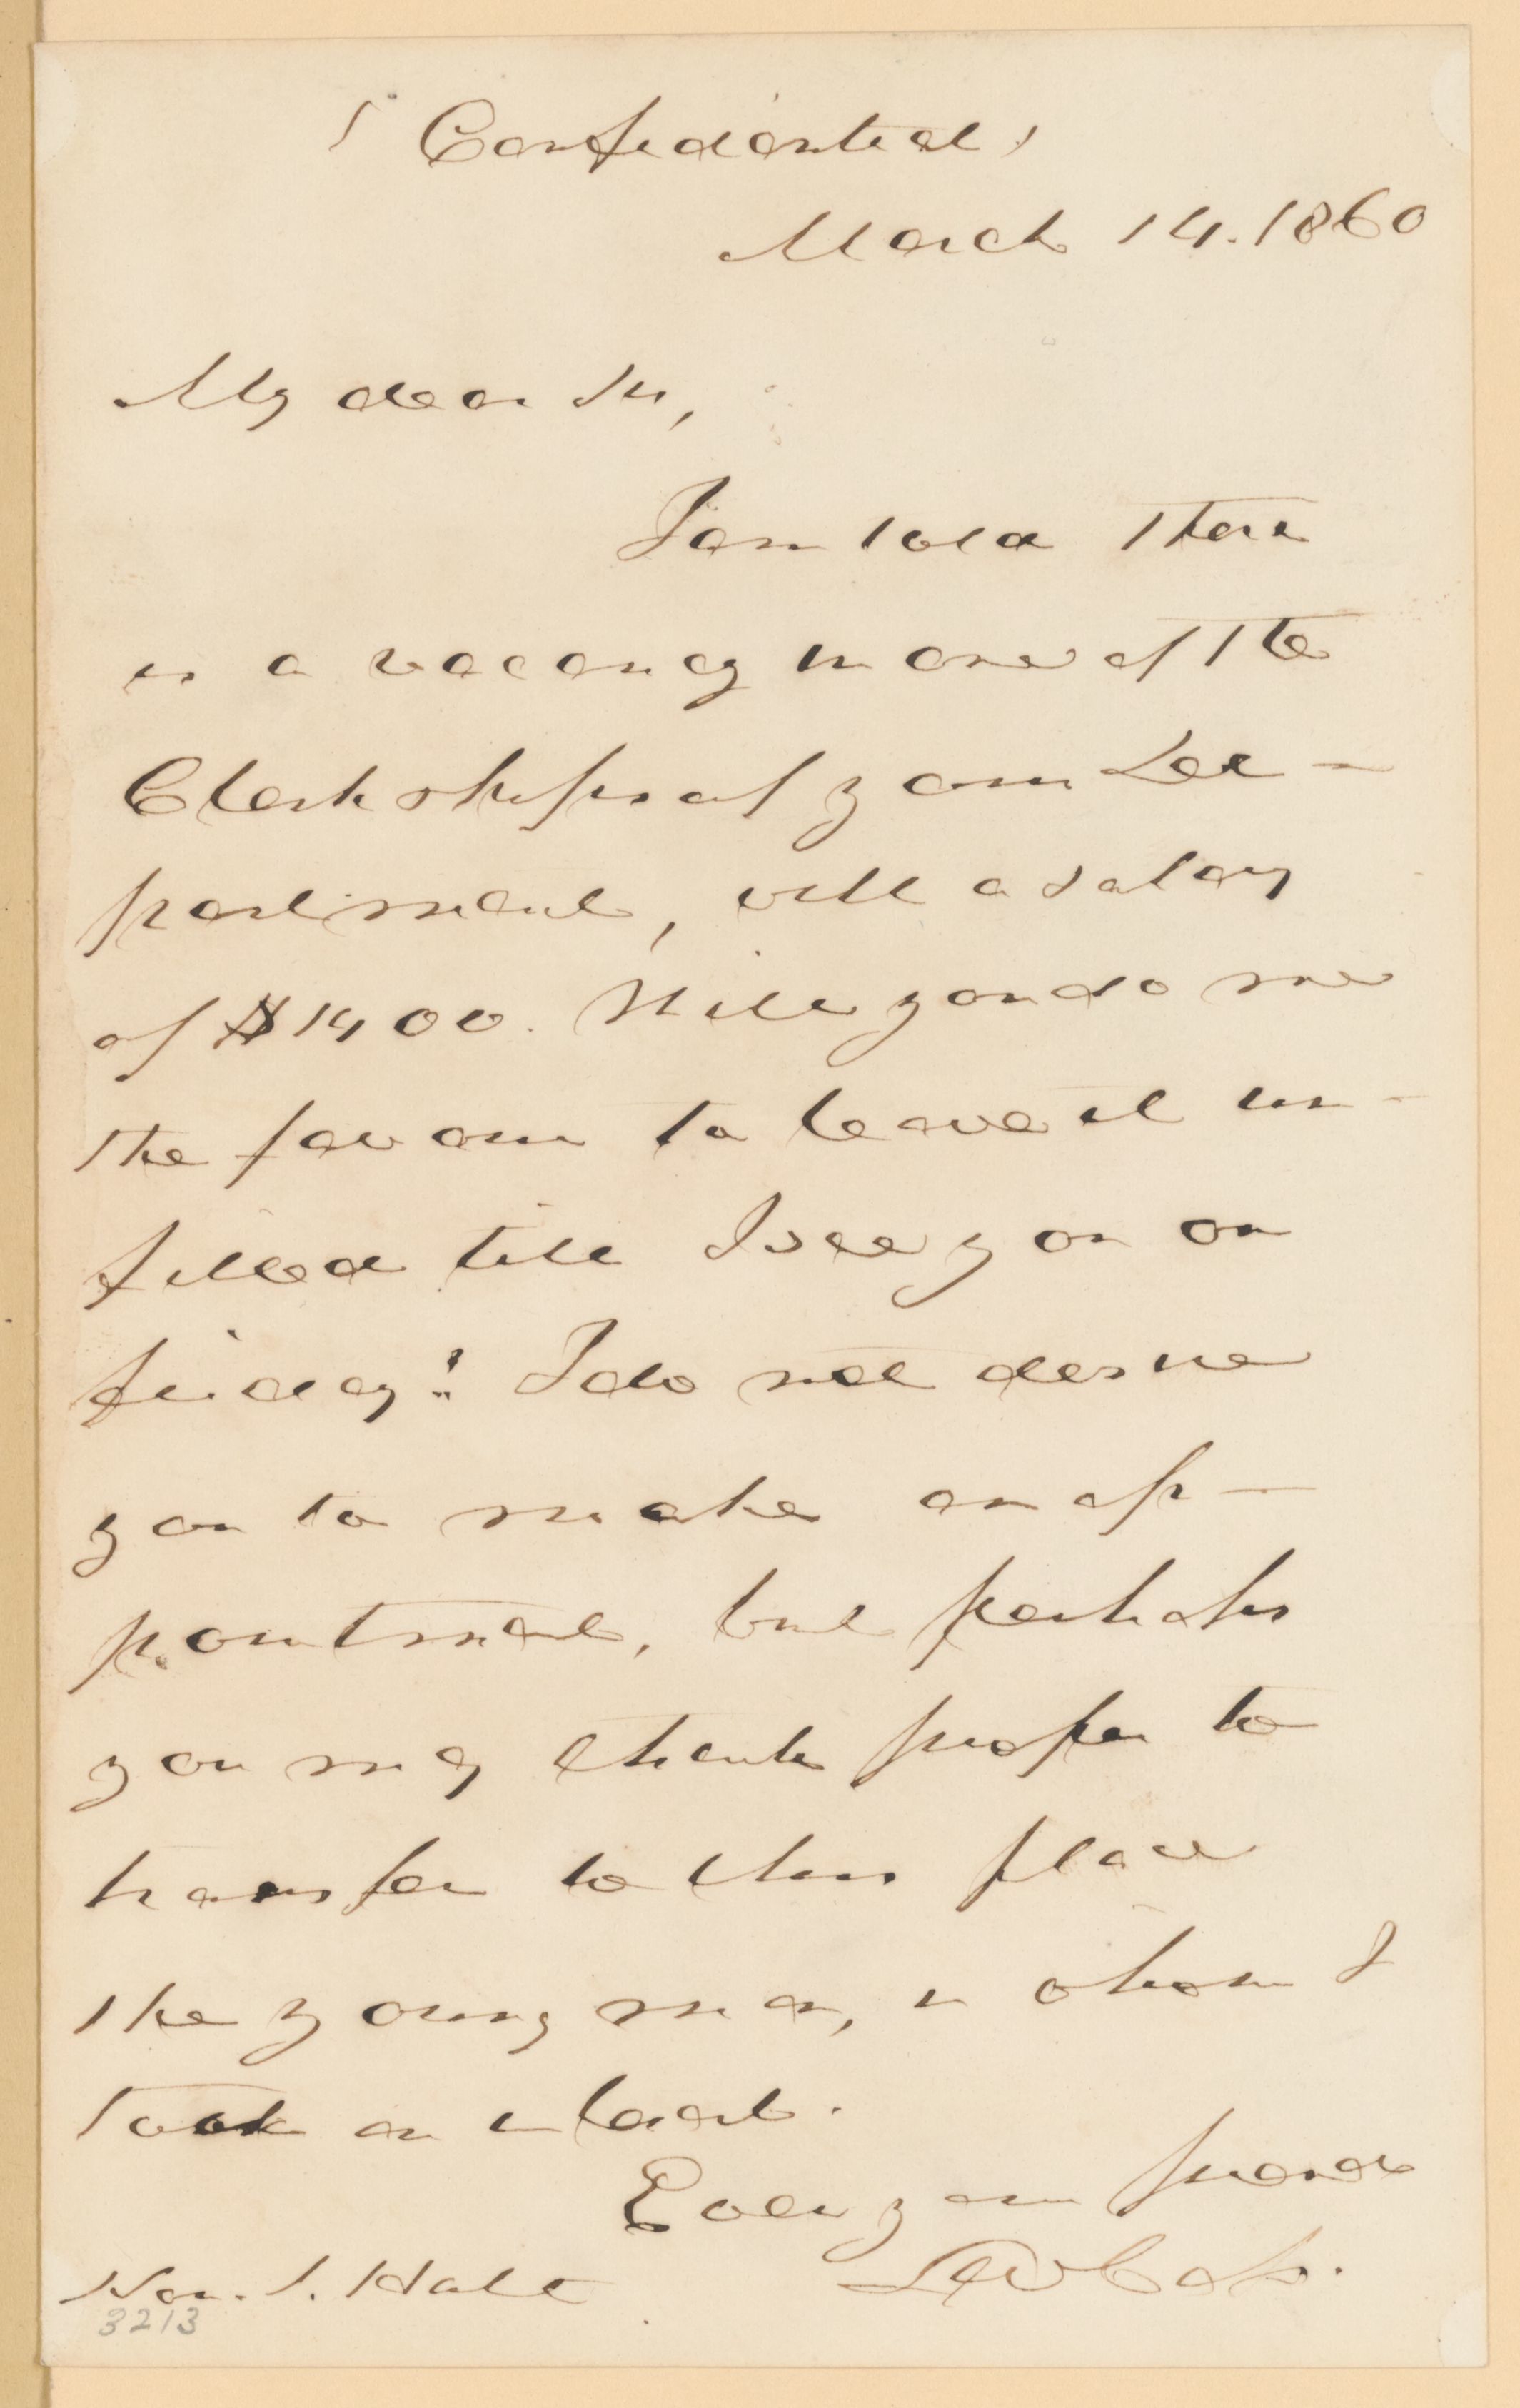 (Confidential)
March 14. 1860
My dear Sir,
I am told there
is a vacancy in one of the
Clerkships of your De-
partment, with a salary
of $1400. Will you do me
the favour to leave it un-
filled till I see you on
friday? I do not desire
you to make an ap-
pointment, but perhaps
you may think proper to
transfer to this place
the young man, in whom I
took an interest.
Ever your friend
Hon. J. Holt
3213